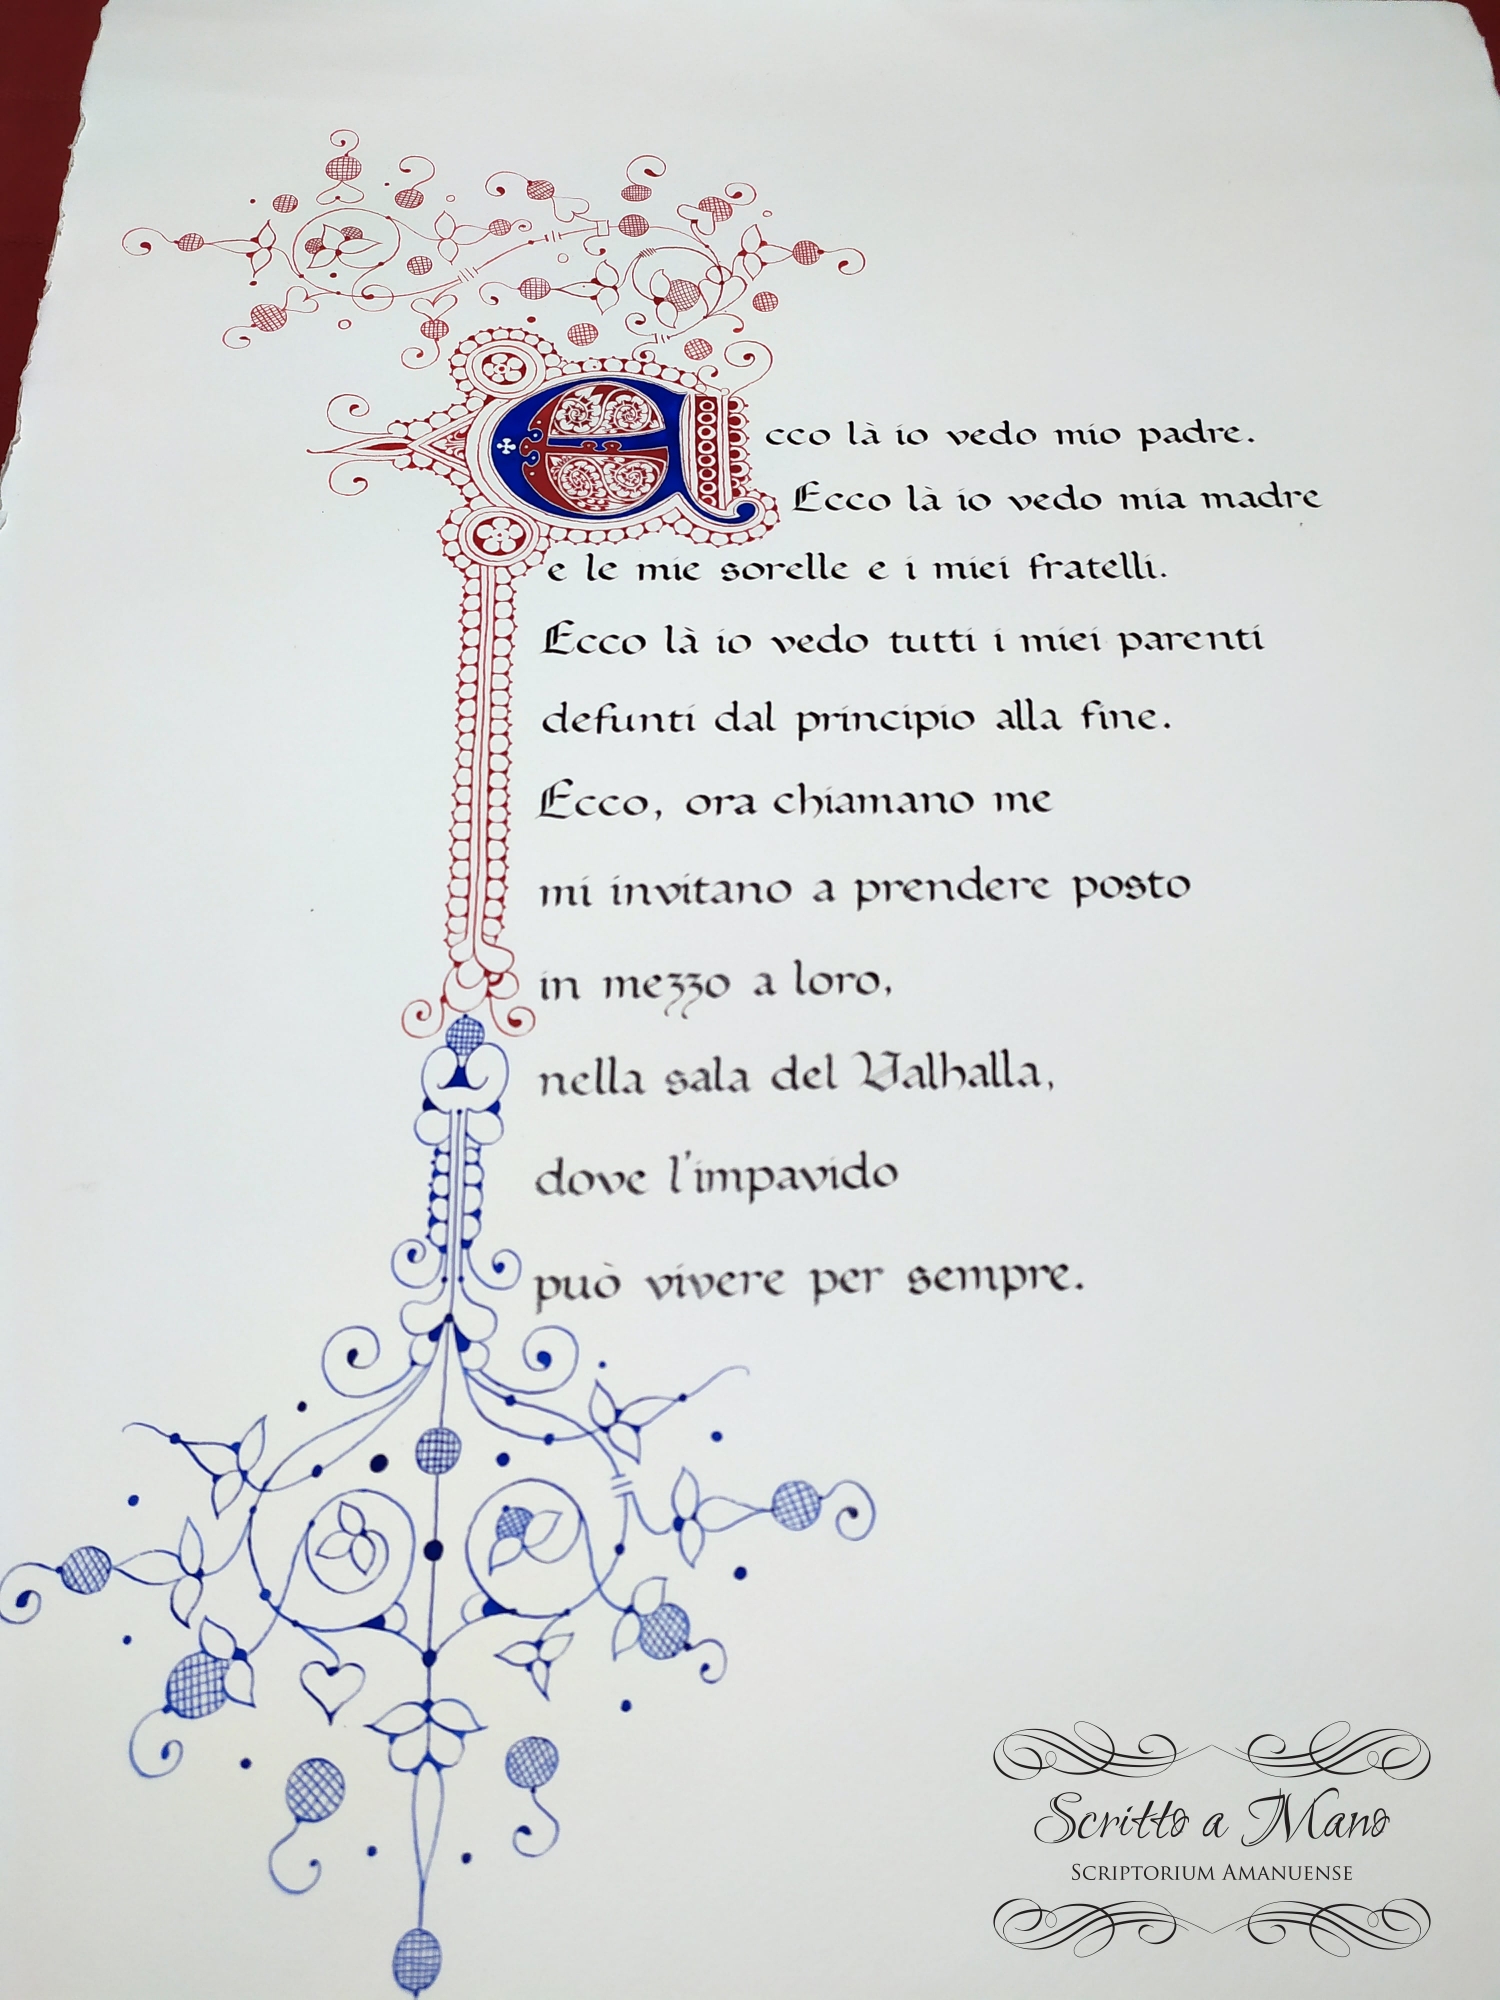 Ecco là io vedo mio padre.
Ecco là io vedo mia madre
e le mie sorelle e i miei fratelli.
Ecco là io vedo tutti i miei parenti
defunti dal principio alla fine.
Ecco, ora chiamano me
mi invitano a prendere posto
in mezzo a loro,
nella sala del Valhalla,
dove l'impavido
può vivere per sempre.
Scritto a Mano
SCRIPTORIUM AMANUENSE